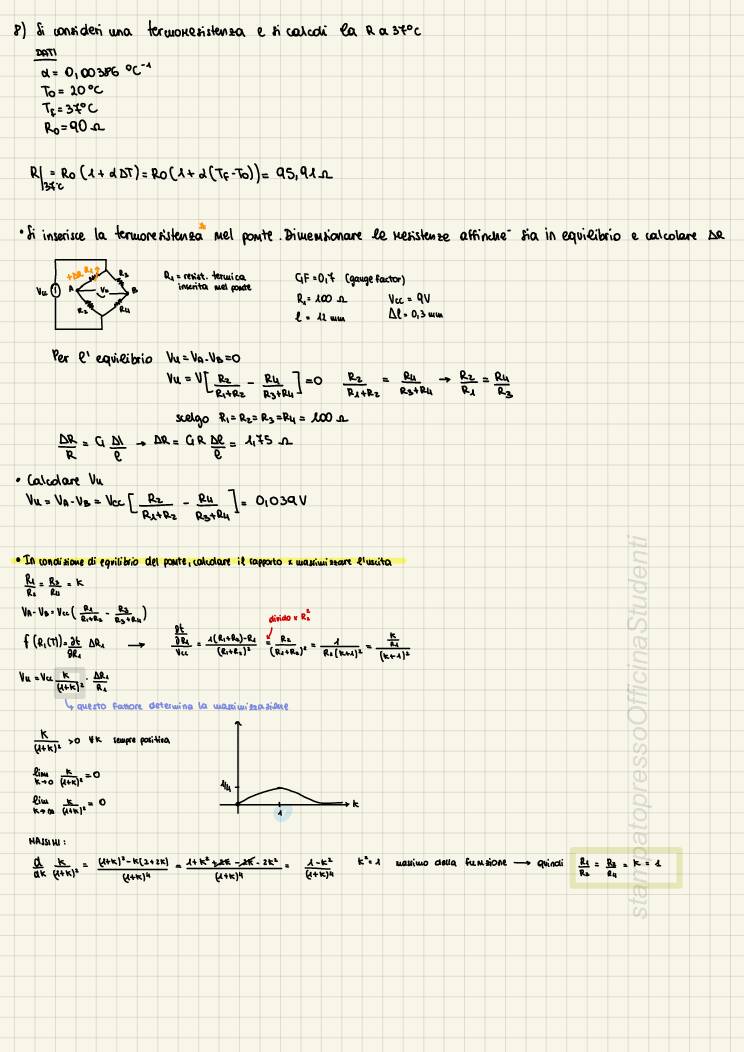 8) Si consideri una termoresistenza e si calcoli la R a 37°C
DATI
α = 0,00386 °C⁻¹
T₀ = 20°C
T_f = 37°C
R₀ = 90 Ω
R|₃₇°C = R₀ (1 + α ΔT) = R₀ (1 + α (T_F - T₀)) = 95,91 Ω
• Si inserisce la termoresistenza* nel ponte. Dimensionare le resistenze affinche' sia in equilibrio e calcolare ΔR
+ΔR R₁ R₃
Vcc A Vu B
R₂ R₄
R₁ = resist. termica
inserita nel ponte
GF = 0,7 (gauge factor)
R₁ = 100 Ω Vcc = 9V
l = 12 mm Δl = 0,3 mm
Per l' equilibrio Vu = VA - VB = 0
Vu = V [R₂/(R₁+R₂) - R₄/(R₃+R₄)] = 0 R₂/(R₁+R₂) = R₄/(R₃+R₄) → R₂/R₁ = R₄/R₃
scelgo R₁ = R₂ = R₃ = R₄ = 100 Ω
ΔR/R = G Δl/l → ΔR = G R Δl/l = 1,75 Ω
• Calcolare Vu
Vu = VA - VB = Vcc [R₂/(R₁+R₂) - R₄/(R₃+R₄)] = 0,039 V
• In condizione di equilibrio del ponte, calcolare il rapporto x massimizzare l'uscita
R₁/R₂ = R₃/R₄ = k
VA - VB = Vcc (R₁/(R₁+R₂) - R₃/(R₃+R₄))
divido x R₂²
f(R₁(T)) = ∂f/∂R₁ ΔR₁ → (∂f/∂R₁)/Vcc = (1(R₁+R₂) - R₁)/(R₁+R₂)² = R₂/(R₁+R₂)² = 1/(R₂(k+1)²) = (k/R₁)/(k+1)²
Vu = Vcc k/(1+k)² · ΔR₁/R₁
↳ questo fattore determina la massimizzazione
k/(1+k)² > 0 ∀k sempre positiva
lim k→0 k/(1+k)² = 0
lim k→∞ k/(1+k)² = 0
1/4
k
1
MASSIMI:
d/dk k/(1+k)² = ((1+k)² - k(2+2k))/(1+k)⁴ = (1 + k² + 2k - 2k - 2k²)/(1+k)⁴ = (1 - k²)/(1+k)⁴ k² = 1 massimo della funzione → quindi R₁/R₂ = R₃/R₄ = k = 1
stampatopressoOfficinaStudenti